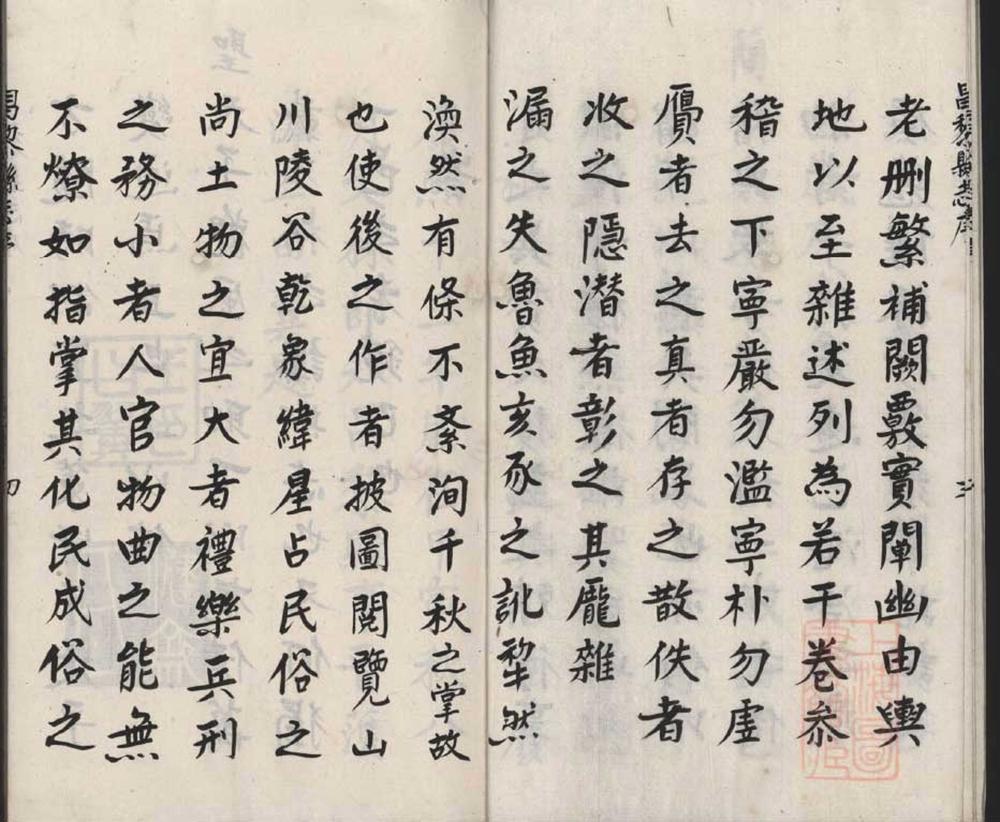 昌黎縣志序
老刪繁補闕覈實闡幽由輿
地以至雜述列為若干卷叅
稽之下寧嚴勿濫寜朴勿虛
贗者去之真者存之散佚者
收之隱潛者彰之其龐雜
漏之失魯魚亥豕之訛犂然
渙然有條不紊洵千秋之掌故
也使後之作者披圖閱覽山
川陵谷乾象緯星占民俗之
尚土物之宜大者禮樂兵刑
之務小者人官物曲之能無
不燎如指掌其化民成俗之